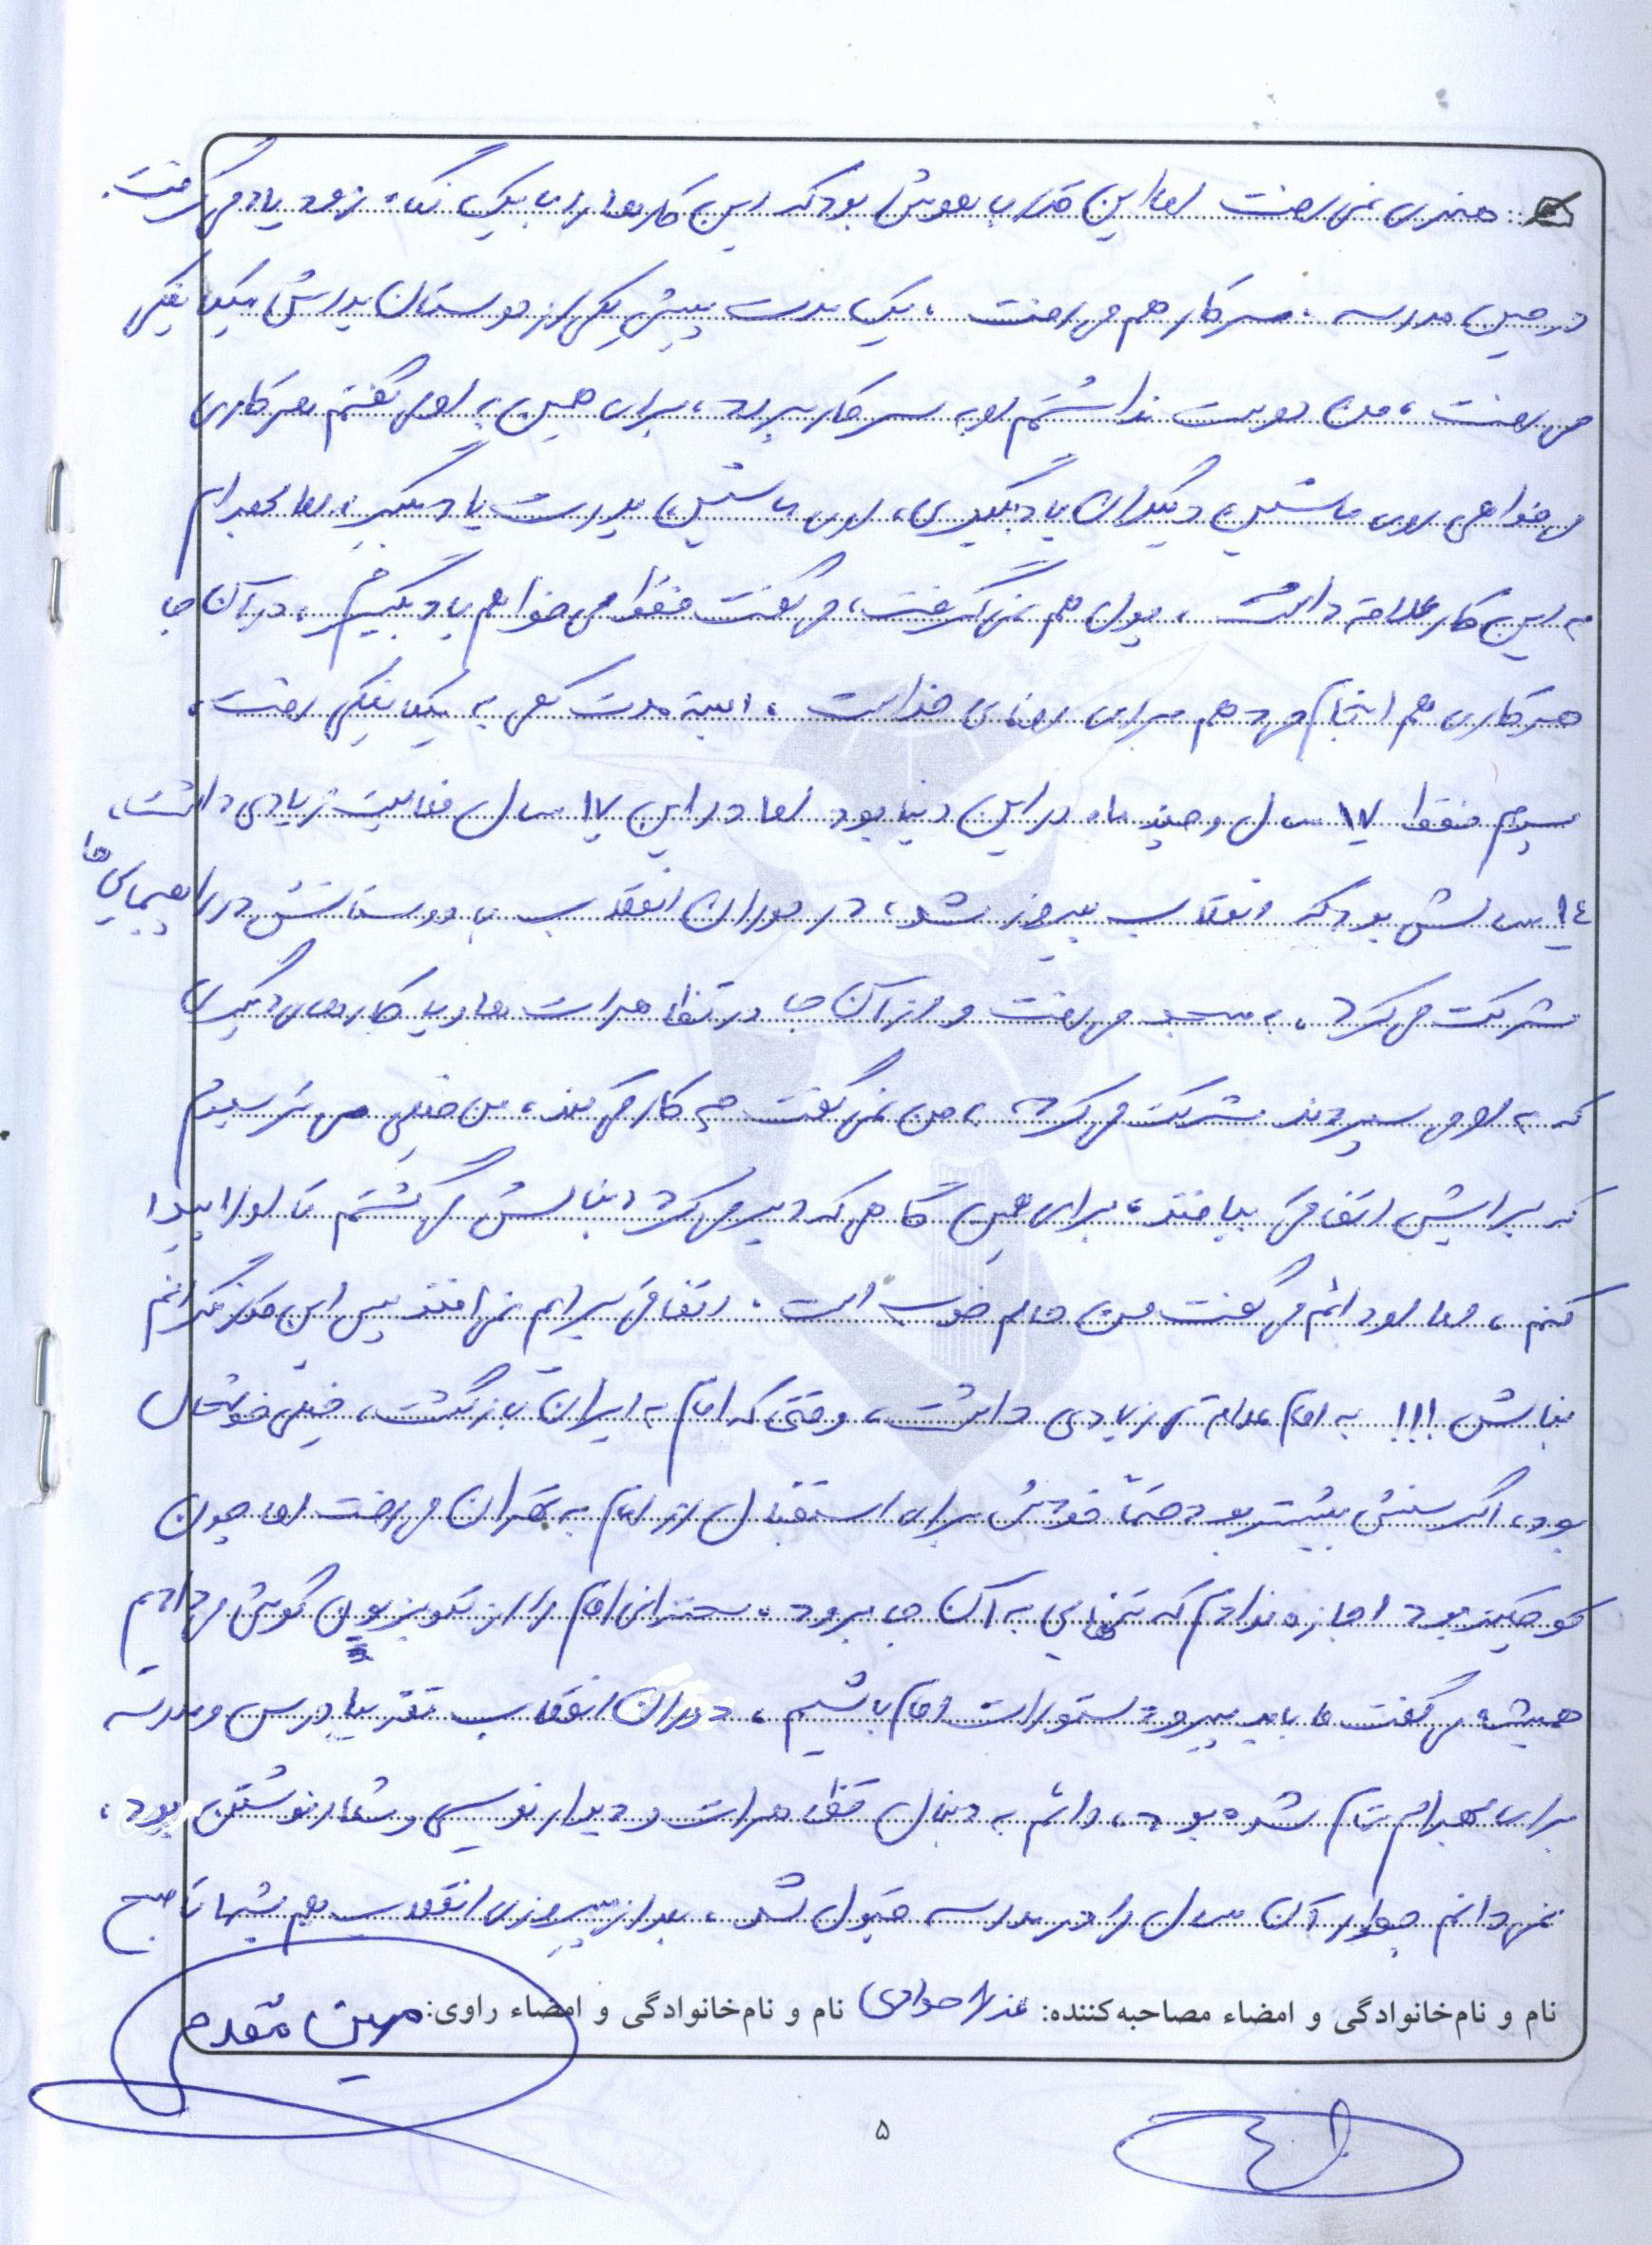 هنری نمی رفت اما این قدر با هوش بود که این کارها را با یک نگاه زود یاد می گرفت.
در حین مدرسه، سر کار هم می رفت، یک مدت پیش یکی از دوستان پدرش مکانیکی
می رفت، من دوست نداشتم او به سر کار برود، برای همین به او می گفتم هر کاری
می خواهی روی ماشین دیگران یاد بگیری، روی ماشین پدرت یاد بگیر، اما بهرام
به این کار علاقه داشت، پول هم نمی گرفت، می گفت فقط می خواهم یاد بگیرم، در آن جا
هر کاری هم انجام می دهم برای رضای خداست، البته مدت کمی به مکانیکی رفت،
پسرم فقط ۱۷ سال و چند ماه در این دنیا بود اما در این ۱۷ سال فعالیت زیادی داشت،
۱۴ سالش بود که انقلاب پیروز شد، در دوران انقلاب با دوستانش در راهپیمایی ها
شرکت می کرد، به مسجد می رفت و از آن جا در تظاهرات ها و یا کارهای دیگری
که به او می سپردند شرکت می کرد، به من نمی گفت چه کار می کند، من خیلی می ترسیدم
که برایش اتفاقی بیافتد، برای همین گاهی که دیر می کرد دنبالش می گشتم تا او را پیدا
کنم، اما او دائم می گفت من حالم خوب است، اتفاقی برایم نمی افتد پس این قدر نگرانم
نباش!!! به امام علاقه ی زیادی داشت، وقتی که امام به ایران بازگشت، خیلی خوشحال
بود، اگر سنش بیشتر بود حتماً خودش برای استقبال از امام به تهران می رفت اما چون
کوچکتر بود اجازه ندادم که تنهایی به آن جا برود، سخنرانی امام را از تلویزیون گوش می دادیم
همیشه می گفت ما باید پیرو دستورات امام باشیم، دوران انقلاب تقریبا درس و مدرسه
برای بهرام تمام شده بود، دائم به دنبال تظاهرات و دیوار نویسی و شعار نوشتن بود،
نمی دانم چطور آن سال را در مدرسه قبول شد، بعد از پیروزی انقلاب هم شبها تا صبح
نام و نام‌خانوادگی و امضاء مصاحبه‌کننده: عذرا جوادی نام و نام‌خانوادگی و امضاء راوی: مهین مقدم
۵